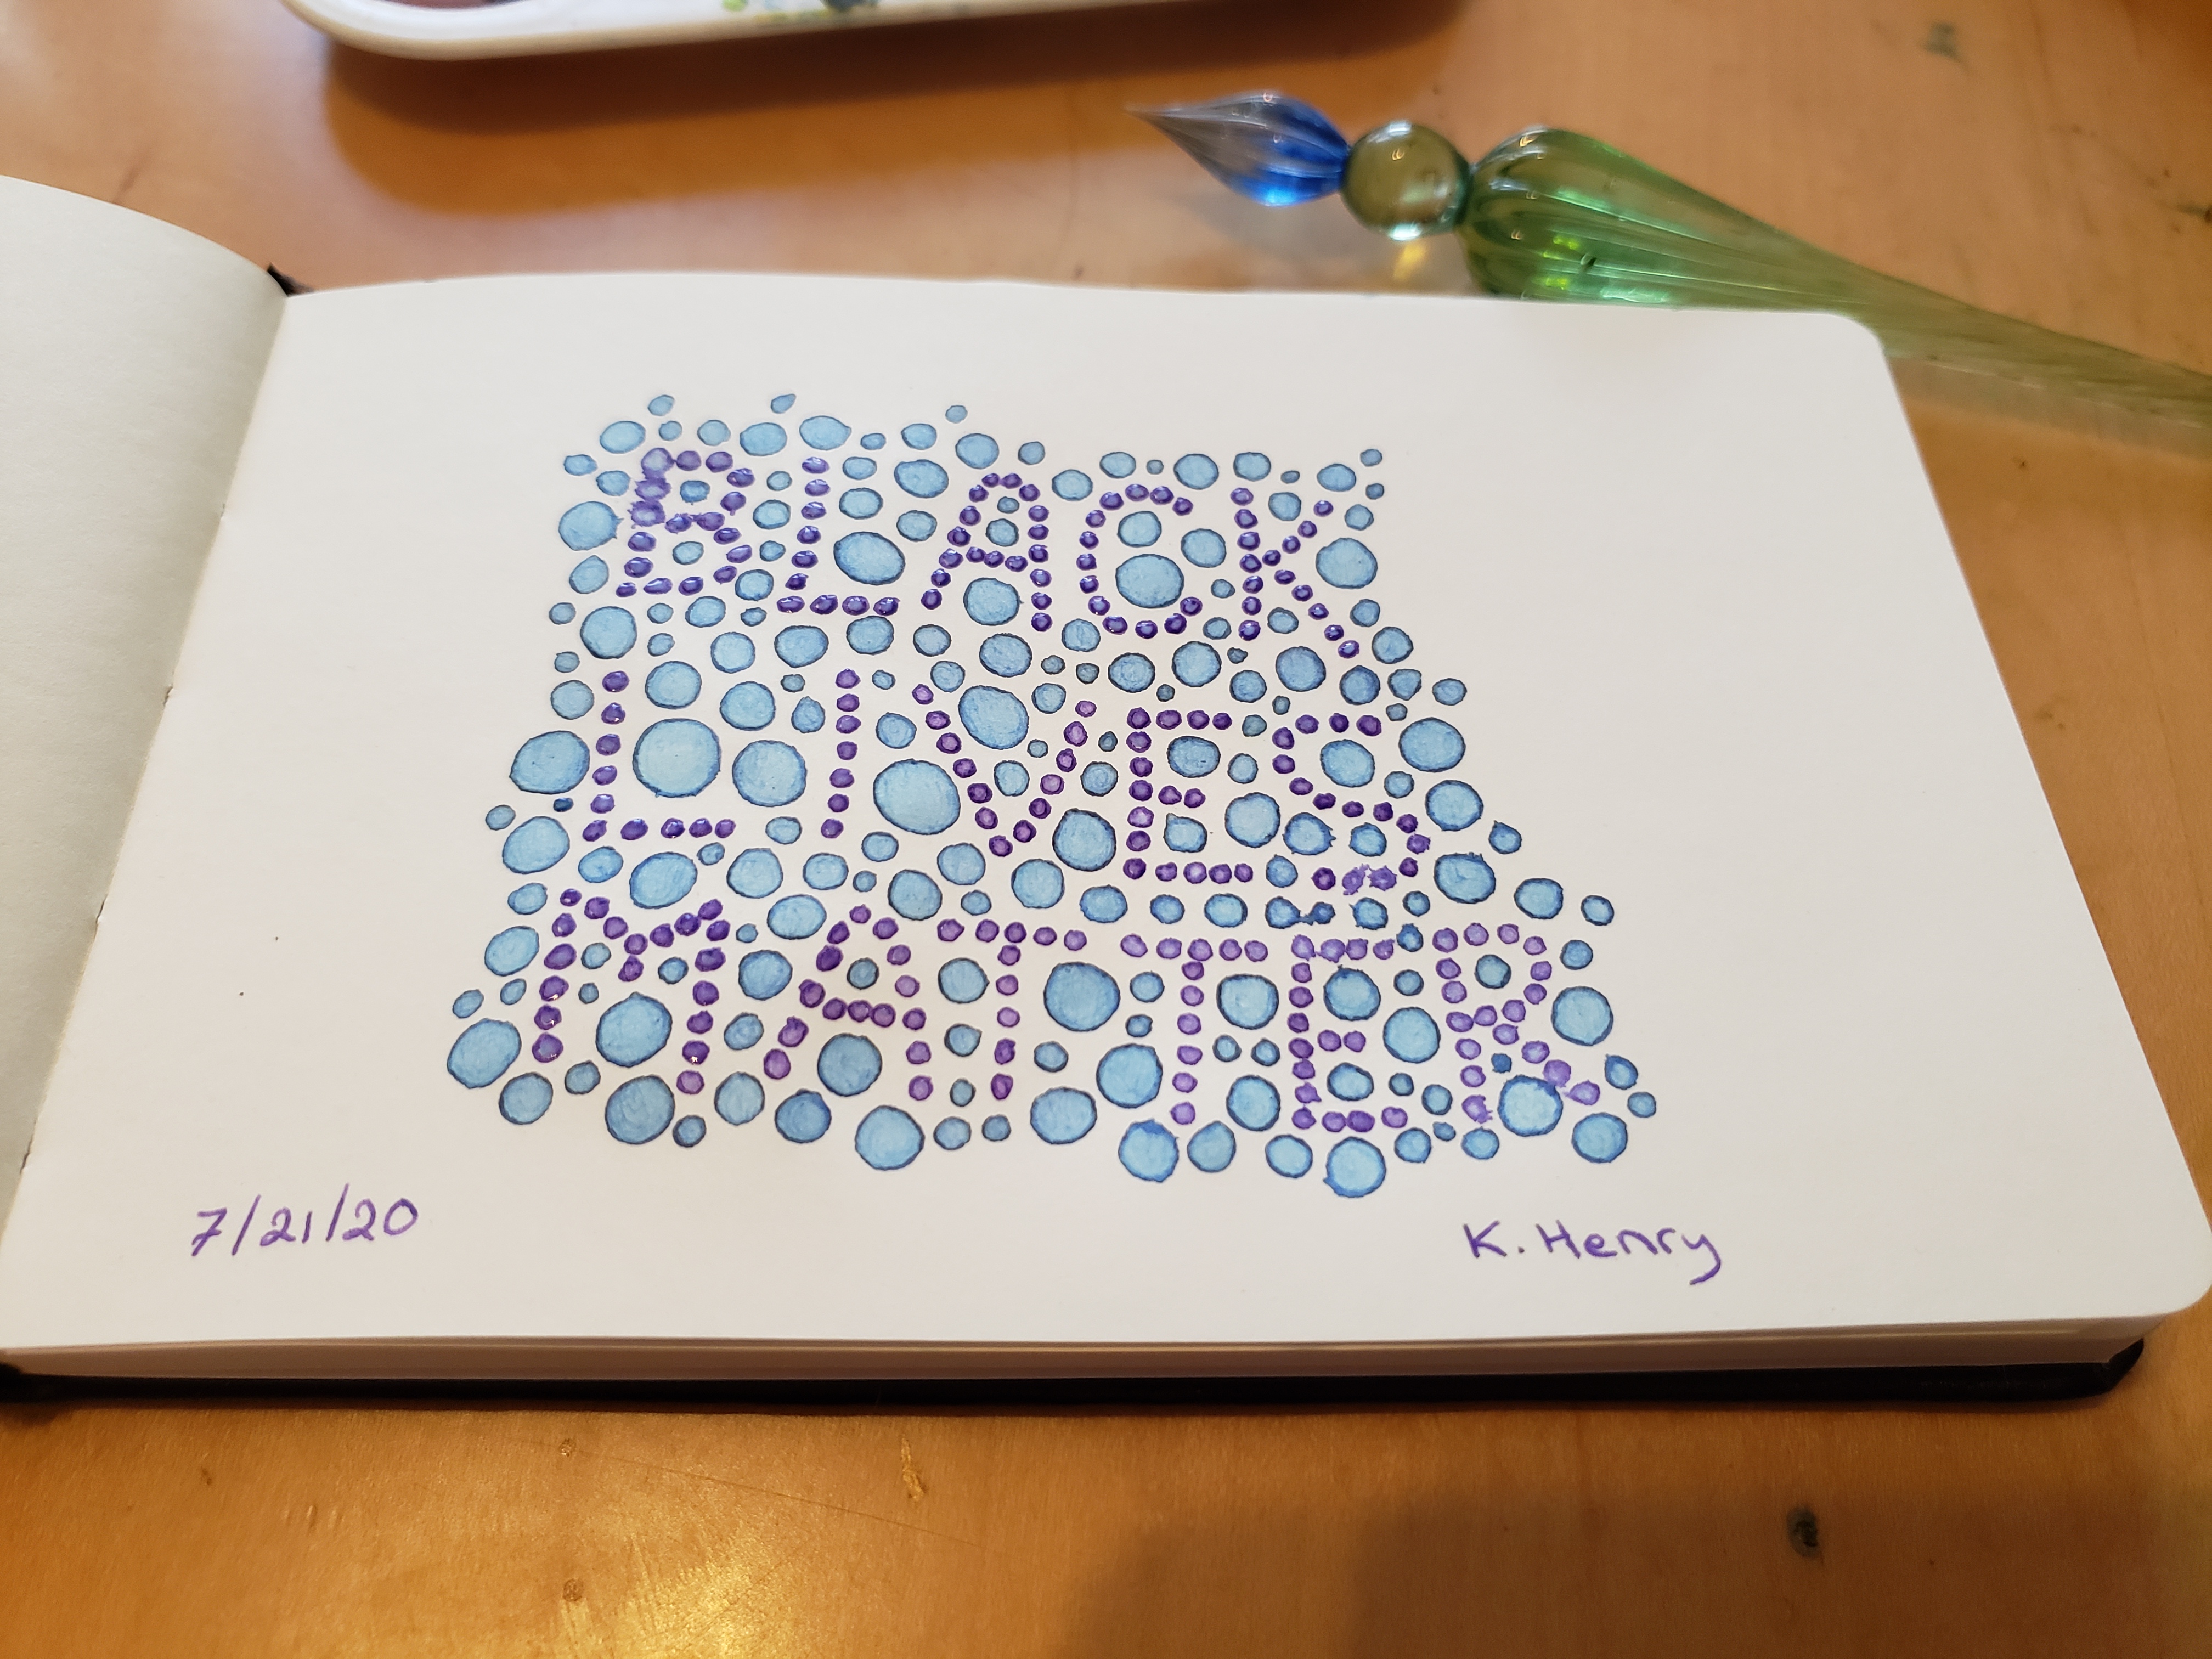 BLACK
LIVES
MATTER
7/21/20
K. Henry